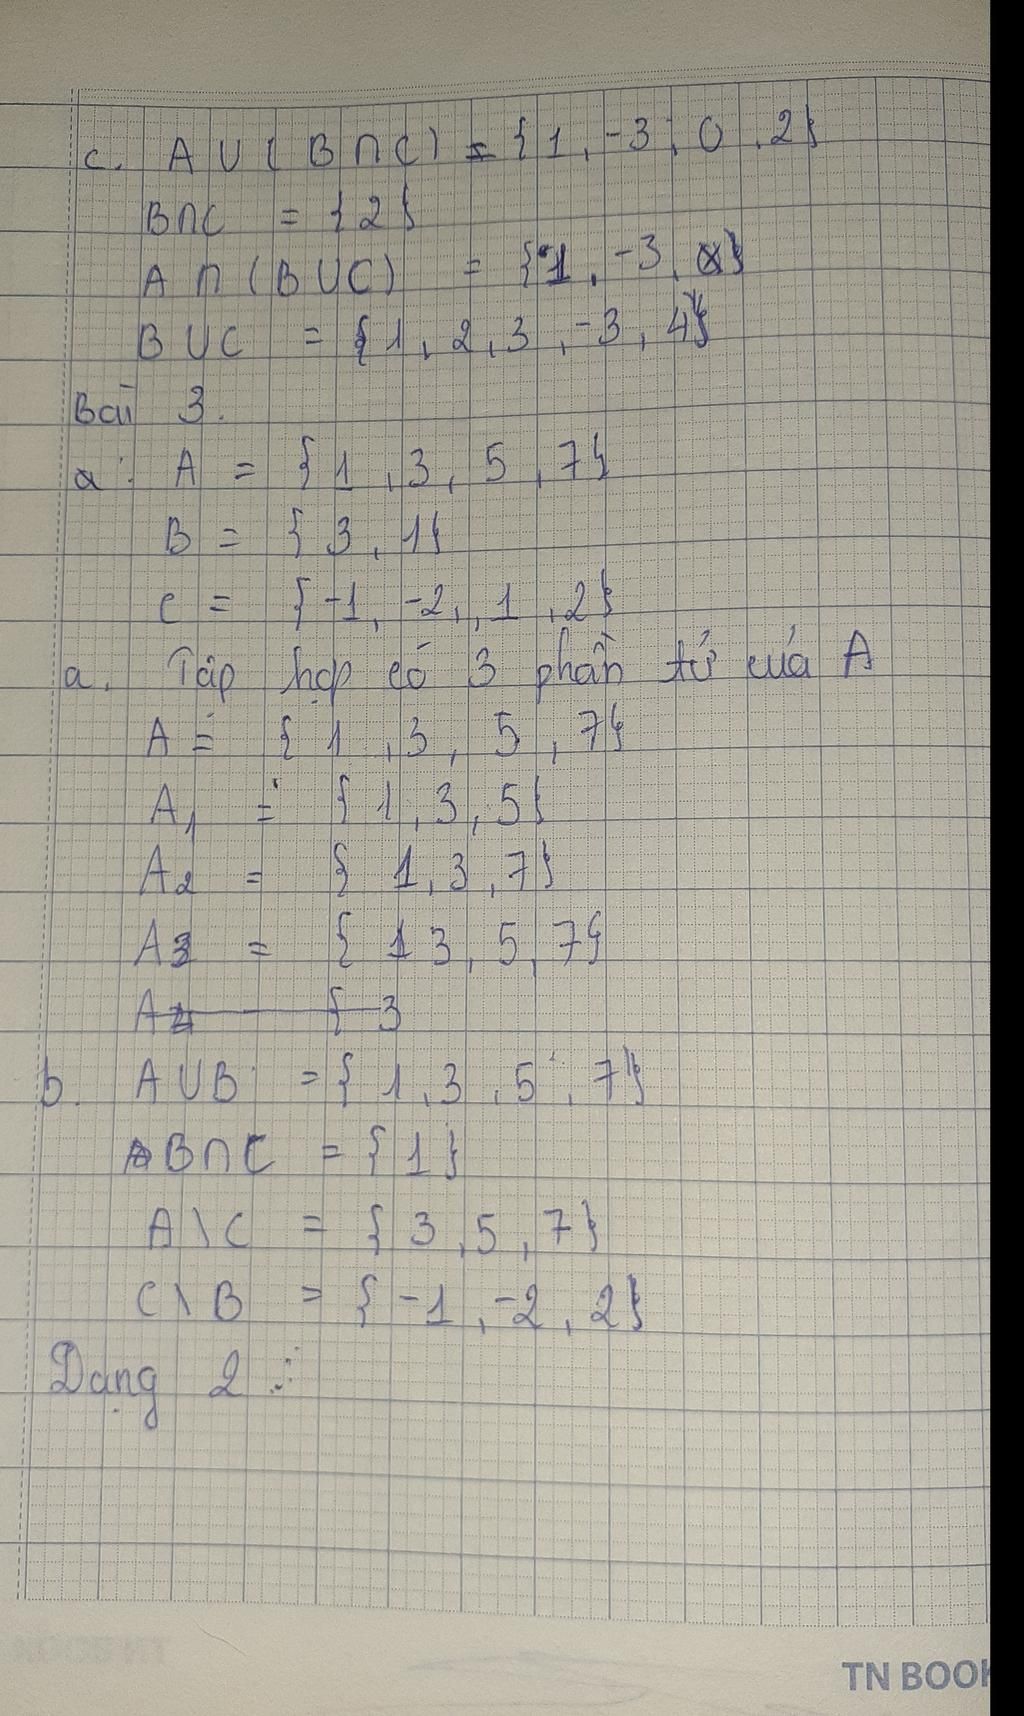 c. A ∪ ( B ∩ C ) = { 1 , -3 , 0 , 2 }
B ∩ C = { 2 }
A ∩ ( B ∪ C ) = { 1 , -3 }
B ∪ C = { 1 , 2 , 3 , -3 , 4 }
Bài 3.
a. A = { 1 , 3 , 5 , 7 }
B = { 3 , 1 }
C = { -1 , -2 , , 1 , 2 }
a. Tâp hợp có 3 phần tử của A
A = { 1 , 3 , 5 , 7 }
A1 = { 1 , 3 , 5 }
A2 = { 1 , 3 , 7 }
A3 = { 1 3 , 5 , 7 }
A4 { 3
b. A ∪ B = { 1 , 3 , 5 , 7 }
B ∩ C = { 1 }
A \ C = { 3 , 5 , 7 }
C \ B = { -1 , -2 , 2 }
Dạng 2 :
TN BOOK